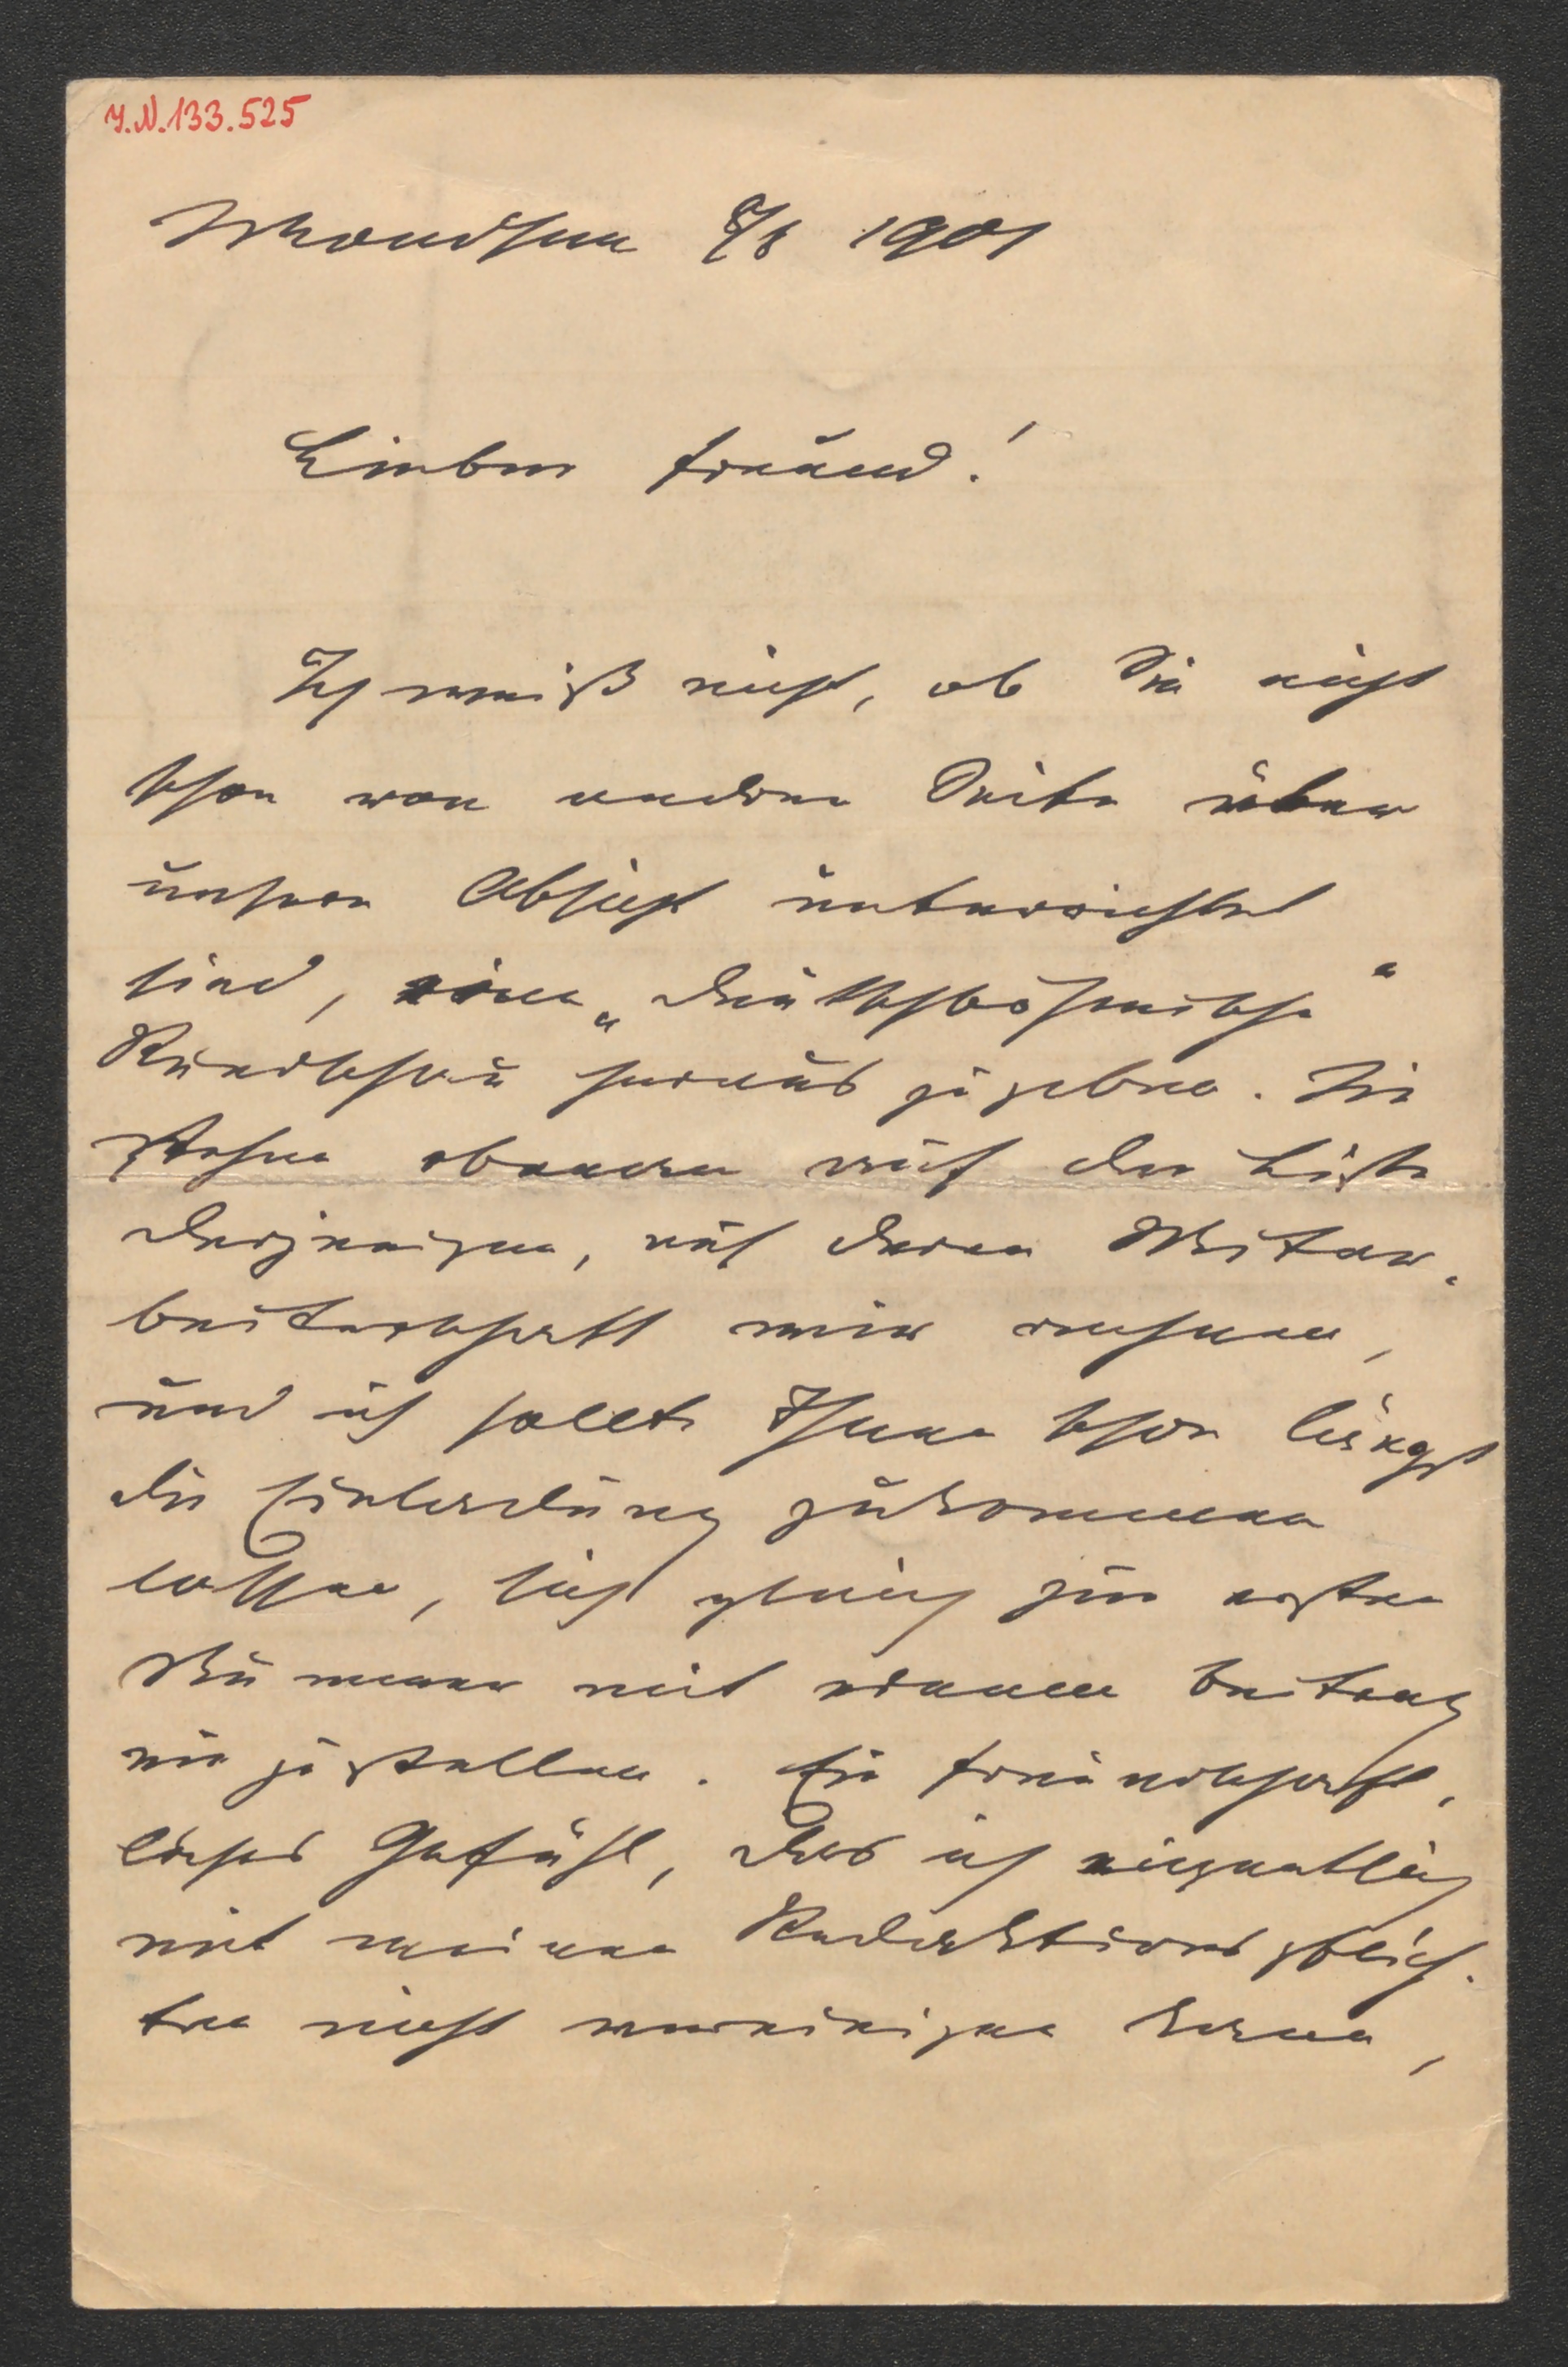 J.N. 133.525
Mondsee 8/8 1901
Lieber Freund!
Ich weiß nicht, ob Sie nicht
schon von andrer Seite über
unsere Absicht unterrichtet
sind, eine „Deutschböhmische"
Rundschau herauszugeben. Sie
stehen obenan auf der Liste
derjenigen, auf deren Mitar-
beiterschaft wir rechnen,
und ich sollte Ihnen schon längst
die Einladung zukommen
lassen, sich gleich zur ersten
Nummer mit einem Beitrag
einzustellen. Ein freundschaft-
liches Gefühl, das ich eigentlich
mit meinen Redaktionspflich-
ten nicht vereinigen kann,